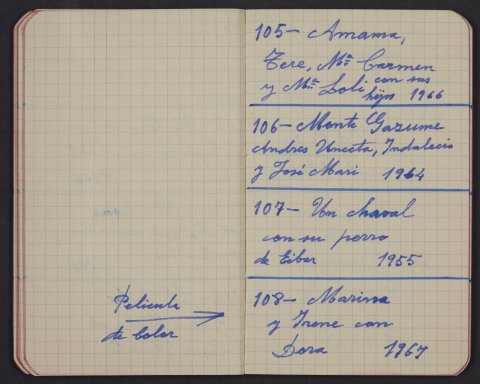 Pelicula
de Color
105- Amama,
Tere, Mª Carmen
y Mª Loli con sus
hijos 1966
106- Monte Gazume
Andres Unceta, Indalecio
y José Mari 1964
107- Un chaval
con su perro
de Eibar 1955
108- Marina
y Irene con
Dora 1967